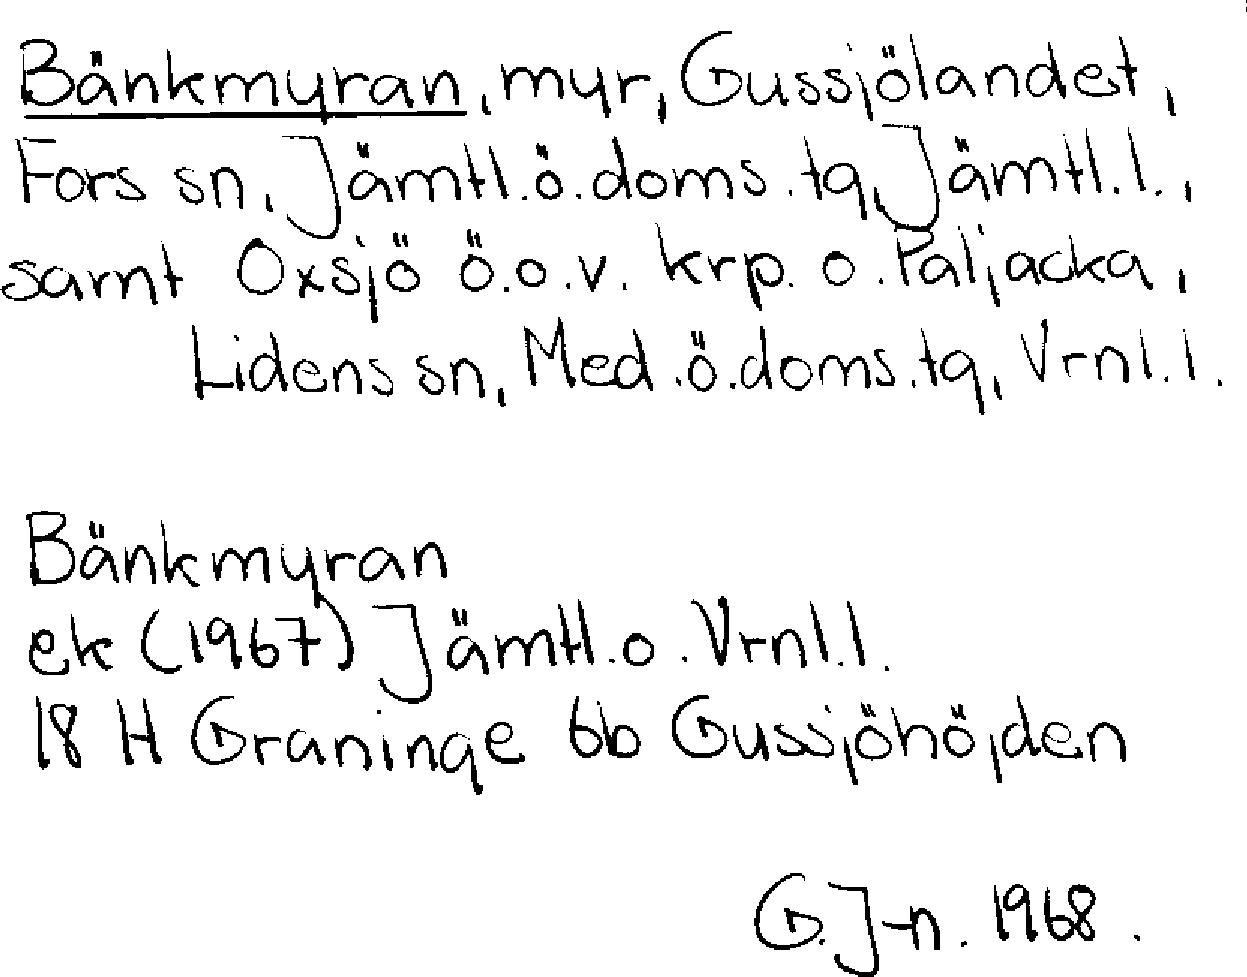 Bänkmyran, myr, Gussjölandet,
Fors sn, Jämtl.ö.doms.tg, Jämtl.l.,
samt Oxsjö ö.o.v. krp. o. Paljacka,
Lidens sn, Med.ö.doms.tg, Vrnl.l.
Bänkmyran
ek (1967) Jämtl.o.Vrnl.l.
18 H Graninge 6b Gussjöhöjden
G.J-n. 1968.